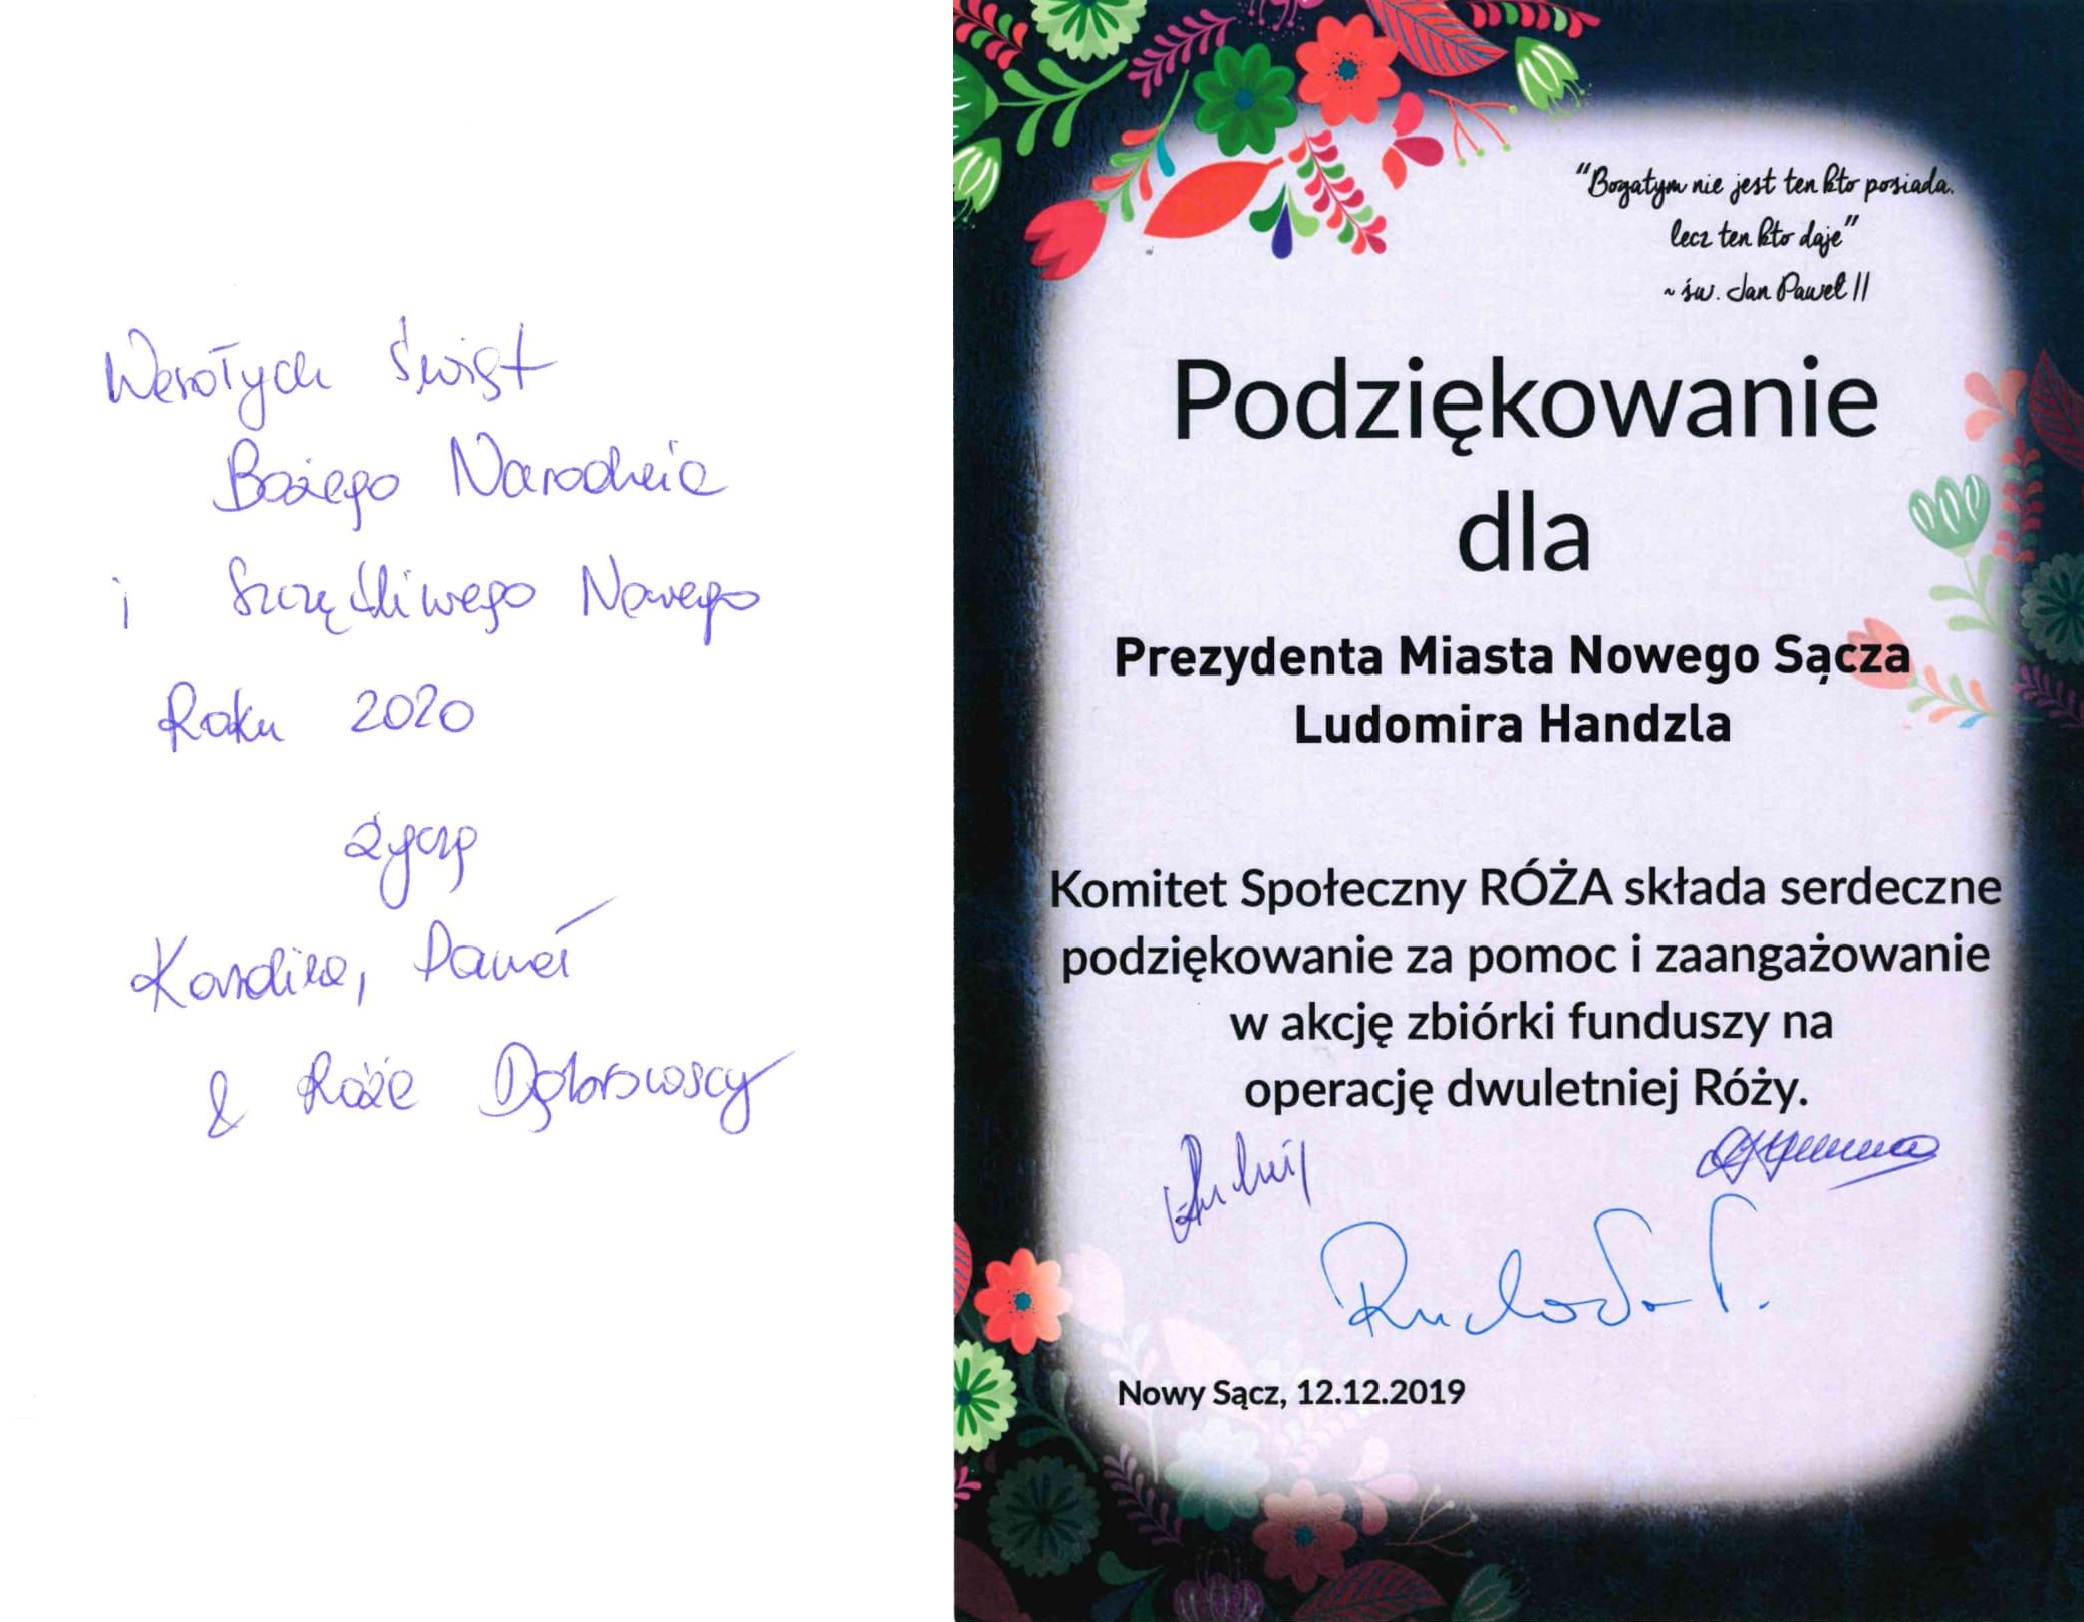 Wesołych Świąt
Bożego Narodzenia
i Szczęśliwego Nowego
Roku 2020
życzą
Karolina, Paweł
& Róża Dąbrowscy
"Bogatym nie jest ten kto posiada.
lecz ten kto daje"
~ św. Jan Paweł II
Podziękowanie
dla
Prezydenta Miasta Nowego Sącza
Ludomira Handzla
Komitet Społeczny RÓŻA składa serdeczne
podziękowanie za pomoc i zaangażowanie
w akcję zbiórki funduszy na
operację dwuletniej Róży.
Nowy Sącz, 12.12.2019